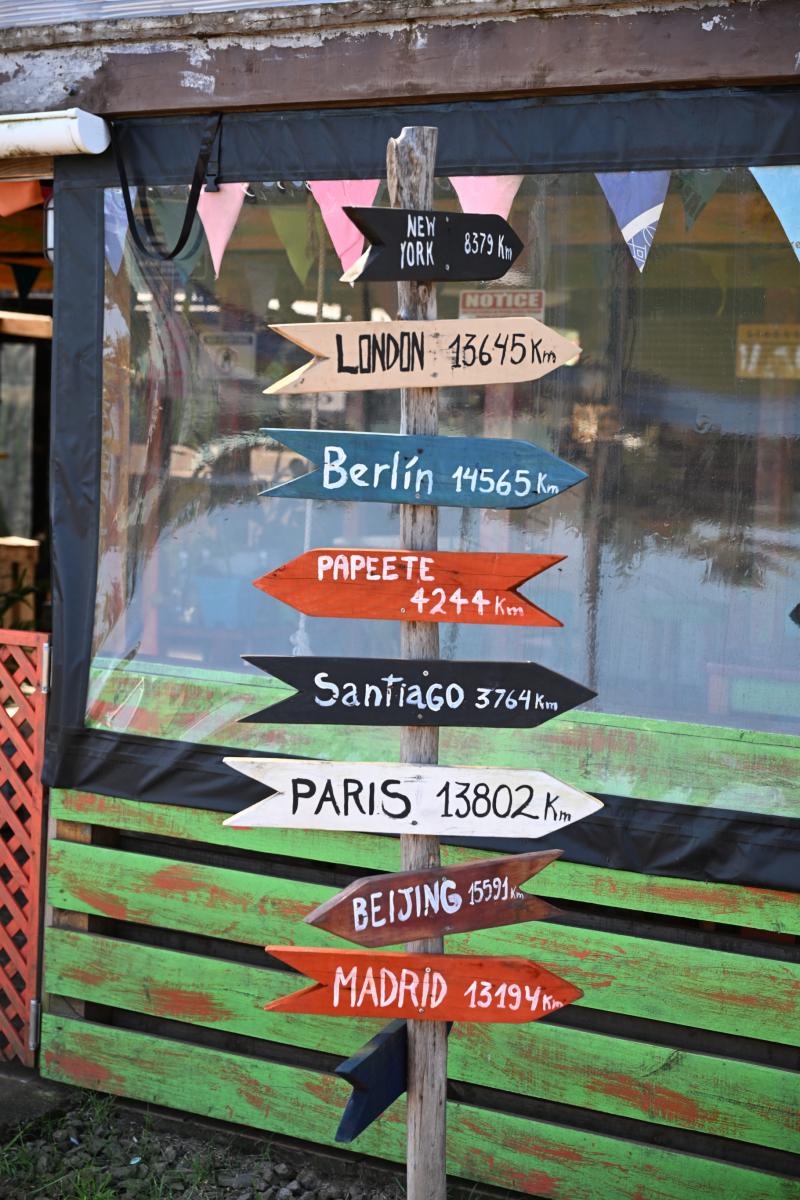 NEW
YORK 8379 Km
NOTICE
LONDON 13645 Km
Berlín 14565 Km
PAPEETE
4244 Km
Santiago 3764 Km
PARIS 13802 Km
BEIJING 15591 Km
MADRID 13194 Km